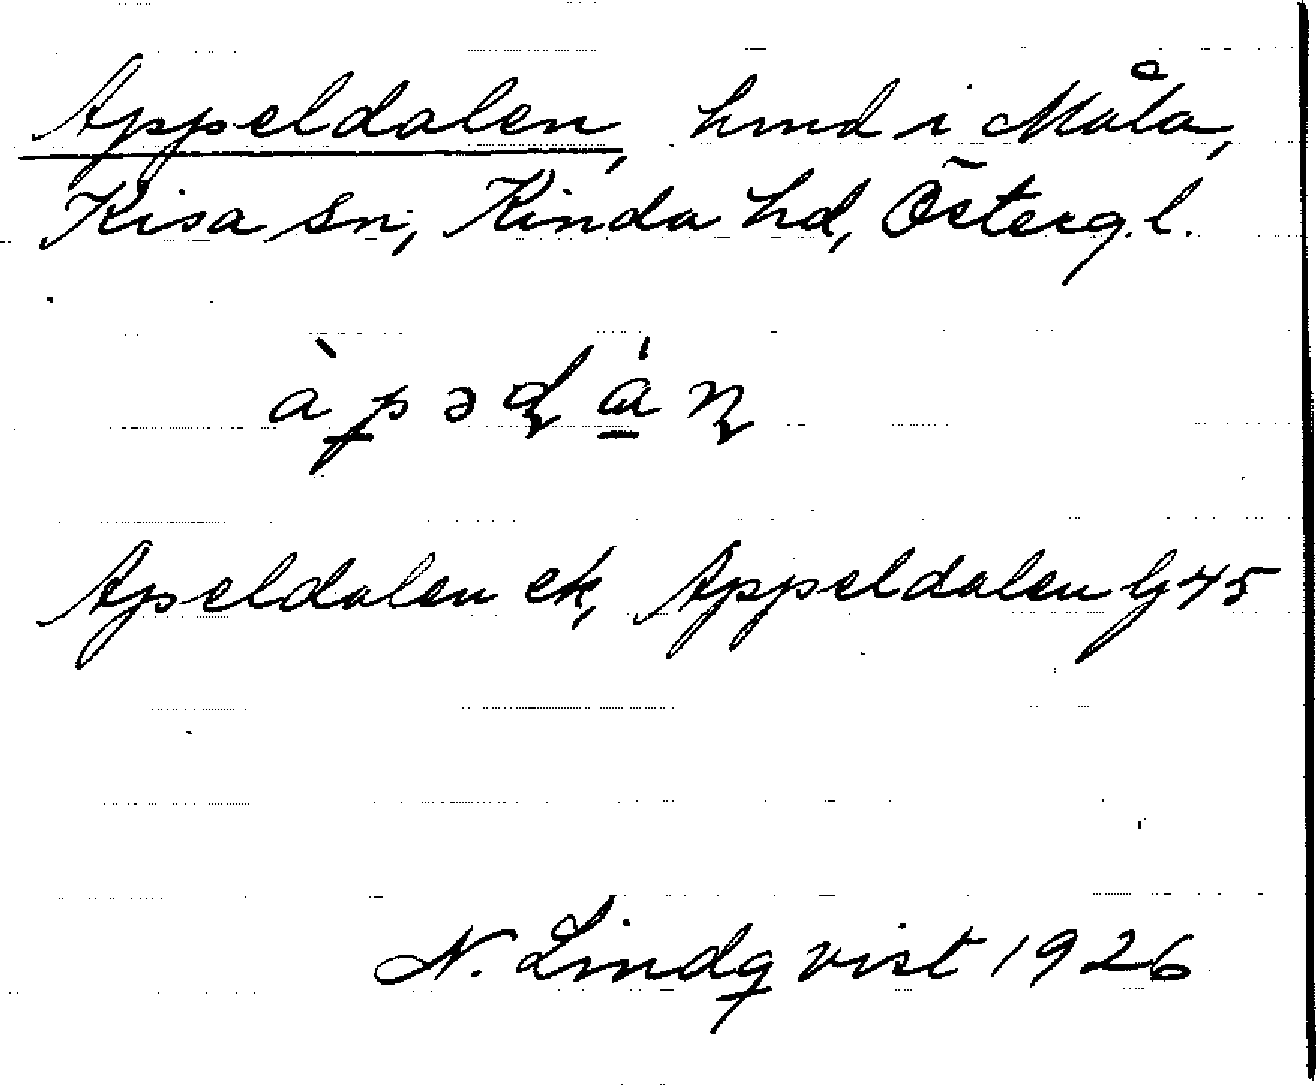 Appeldalen, hmd i Måla,
Kisa sn, Kinda hd, Östergl.
àpəɖá̱ɳ
Apeldalen ek, Appeldalen G45
N. Lindqvist 1926